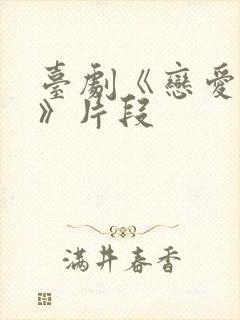 臺劇《戀愛
》片段
滿井春香